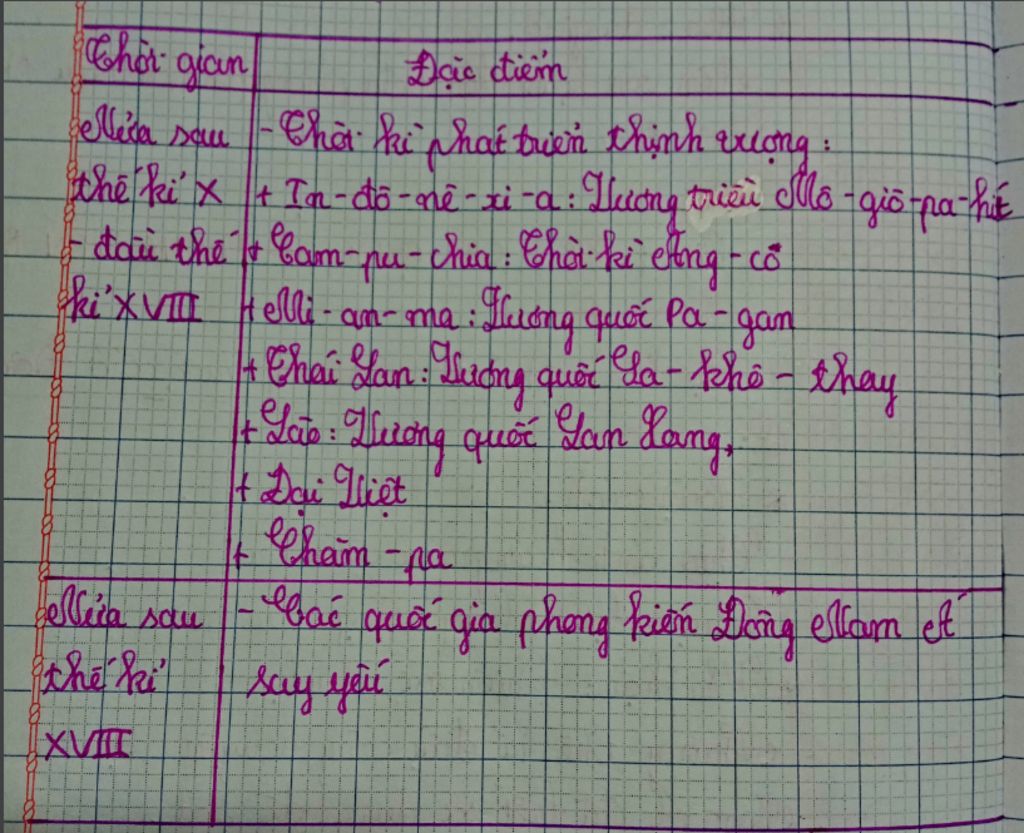 Thời gian
Đặc điểm
Nửa sau
thế kỉ X
- đầu thế
kỉ XVIII
- Thời kì phát triển thịnh vượng :
+ In-đô-nê-xi-a : Vương triều Mô-giô-pa-hít
+ Cam-pu-chia : Thời kì Ăng-co
+ Mi-an-ma : Vương quốc Pa-gan
+ Thái Lan : Vương quốc Su-khô-thay
+ Lào : Vương quốc Lan Xang,
+ Đại Việt
+ Chăm-pa
Nửa sau
thế kỉ
XVIII
- Các quốc gia phong kiến Đông Nam Á
suy yếu